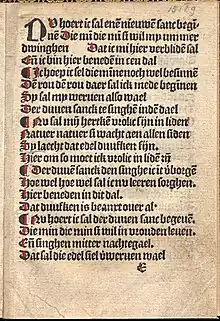 NV hoert ic sal enē nieuwē sanc begī
Die mi die mi si wil my ummer
dwinghen Dat i mi hier verblidē sal
Eñ ic bin hier benedē in een dal
¶ Je hoep ic sel die minē noch wel besinnē
Dē rou dē rou daer sal ick mede beginen
Sy sal my werten also wael
Der duven sanck te singhē indē dael
¶ Nu sal mij hertkē vrolic sijn in lidenē
Natuer natuer si wacht gen allen siden
Sy laecht dat edel duufken sijn.
Hier om so moet ick vrolic in lidē zij
¶ Der duuē sanck dē singhe ic it vborgē
Hoe wel hoe wel sal ic nv leeren sorghen.
Hier beneden in dit dal.
Dat duufken is beanxt ouer al·
¶ Nu hoert ic sal der duuen sanc begeuē.
Die min die min si wil in vrouden leuen.
Eñ singhen mitter nachtegael.
Dat sal die edel siel vweruen wael